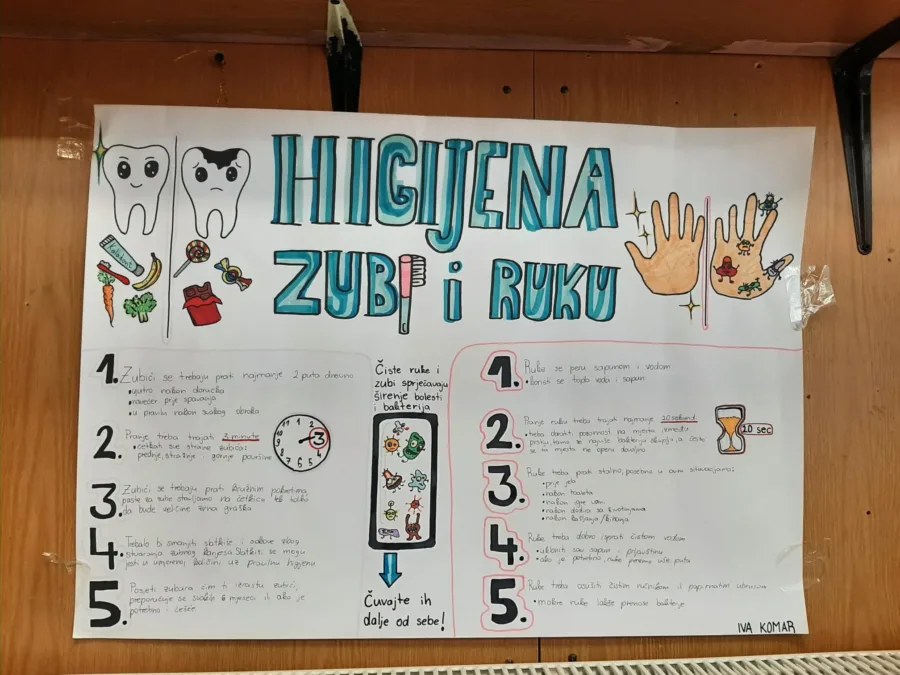 HIGIJENA
ZUBI i RUKU
Kalodont
1. Zubići se trebaju prati najmanje 2 puta dnevno
• ujutro nakon doručka
• navečer prije spavanja
• u pravilu nakon svakog obroka
2. Pranje treba trajati 3 minute
• četkati sve strane zubića:
prednje, stražnje i gornje površine
12 1 2 3 4 5 6 7 8 9 10 11
3. Zubići se trebaju prati kružnim pokretima,
paste za zube stavljamo na četkicu tek toliko
da bude veličine zrna graška
4. Trebalo bi smanjiti slatkiše i sokove zbog
stvaranja zubnog karijesa. Slatkiši se mogu
jesti u umjerenoj količini uz pravilnu higijenu
5. Posjeti zubara čim ti izrastu zubići,
preporučuje se svakih 6 mjeseci ili ako je
potrebno i češće
Čiste ruke i
zubi sprječavaju
širenje bolesti
i bakterija
Čuvajte ih
dalje od sebe!
1. Ruke se peru sapunom i vodom
• koristi se topla voda i sapun
2. Pranje ruku treba trajati najmanje 20 sekundi
• treba obratiti pozornost na mjesta između
prstiju, tamo se najviše bakterija skuplja, a često
se ta mjesta ne operu dovoljno
20 sec
3. Ruke treba prati stalno, posebno u ovim situacijama:
• prije jela
• nakon toaleta
• nakon igre vani
• nakon dodira sa životinjama
• nakon kašljanja/kihanja
4. Ruke treba dobro isprati čistom vodom
• ukloniti sav sapun i prljavštinu
• ako je potrebno, ruke peremo više puta
5. Ruke treba osušiti čistim ručnikom ili papirnatim ubrusom
• mokre ruke lakše prenose bakterije
IVA KOMAR